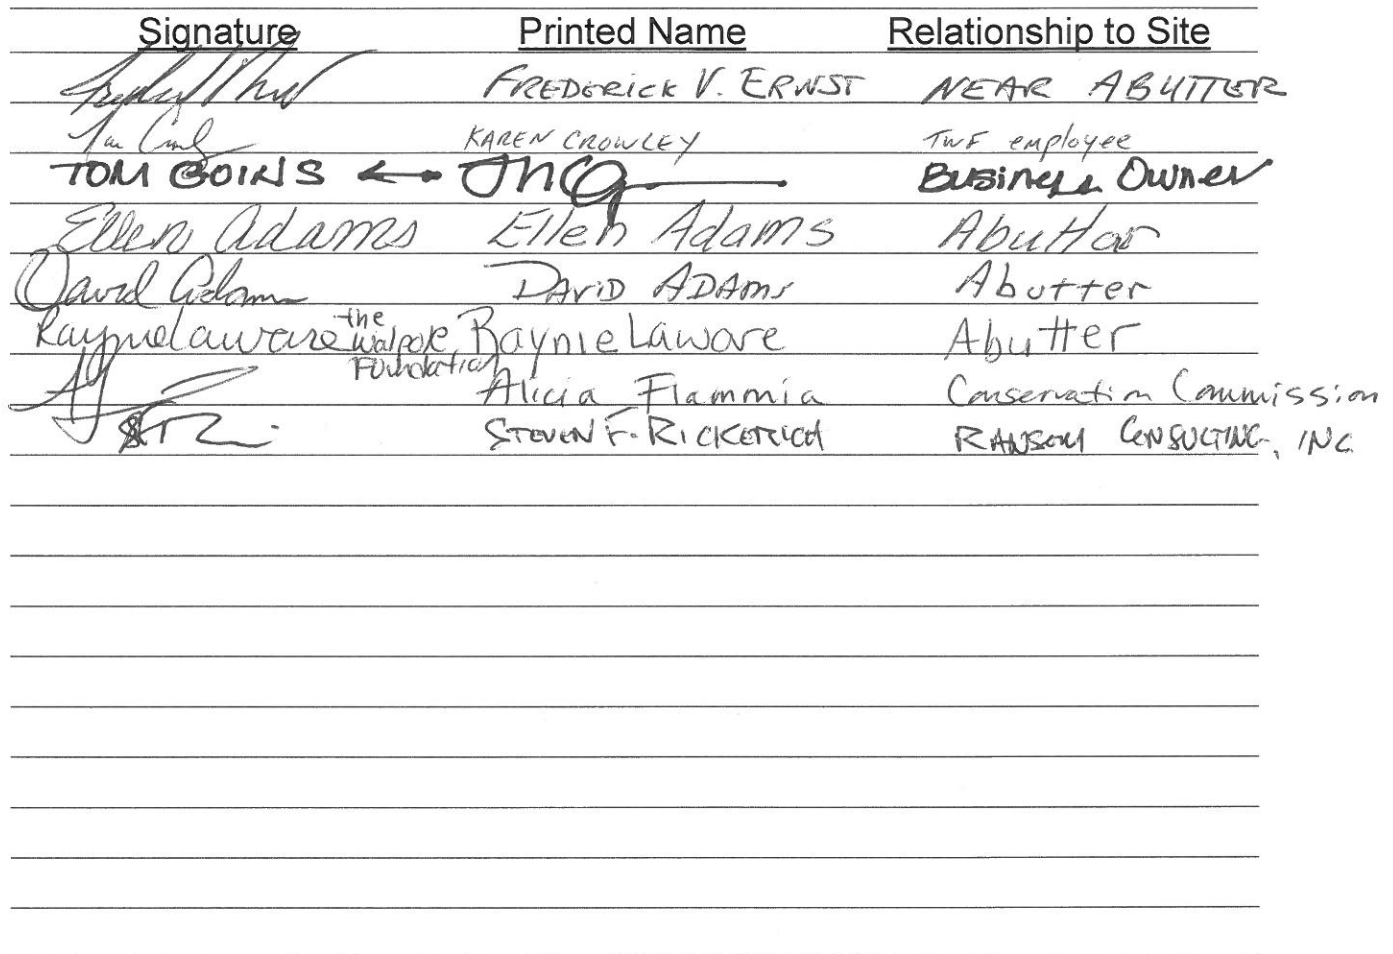 Signature Printed Name Relationship to Site
FREDERICK V. ERNST NEAR ABUTTER
KAREN CROWLEY TWF employee
TOM GOINS Business Owner
Ellen Adams Ellen Adams Abuttor
David Adams DAVID ADAMS Abutter
Raynie Laware the Walpole Foundation Raynie Laware Abutter
Alicia Flammia Conservation Commission
STEVEN F. RICKERICH RANSOM CONSULTING, INC